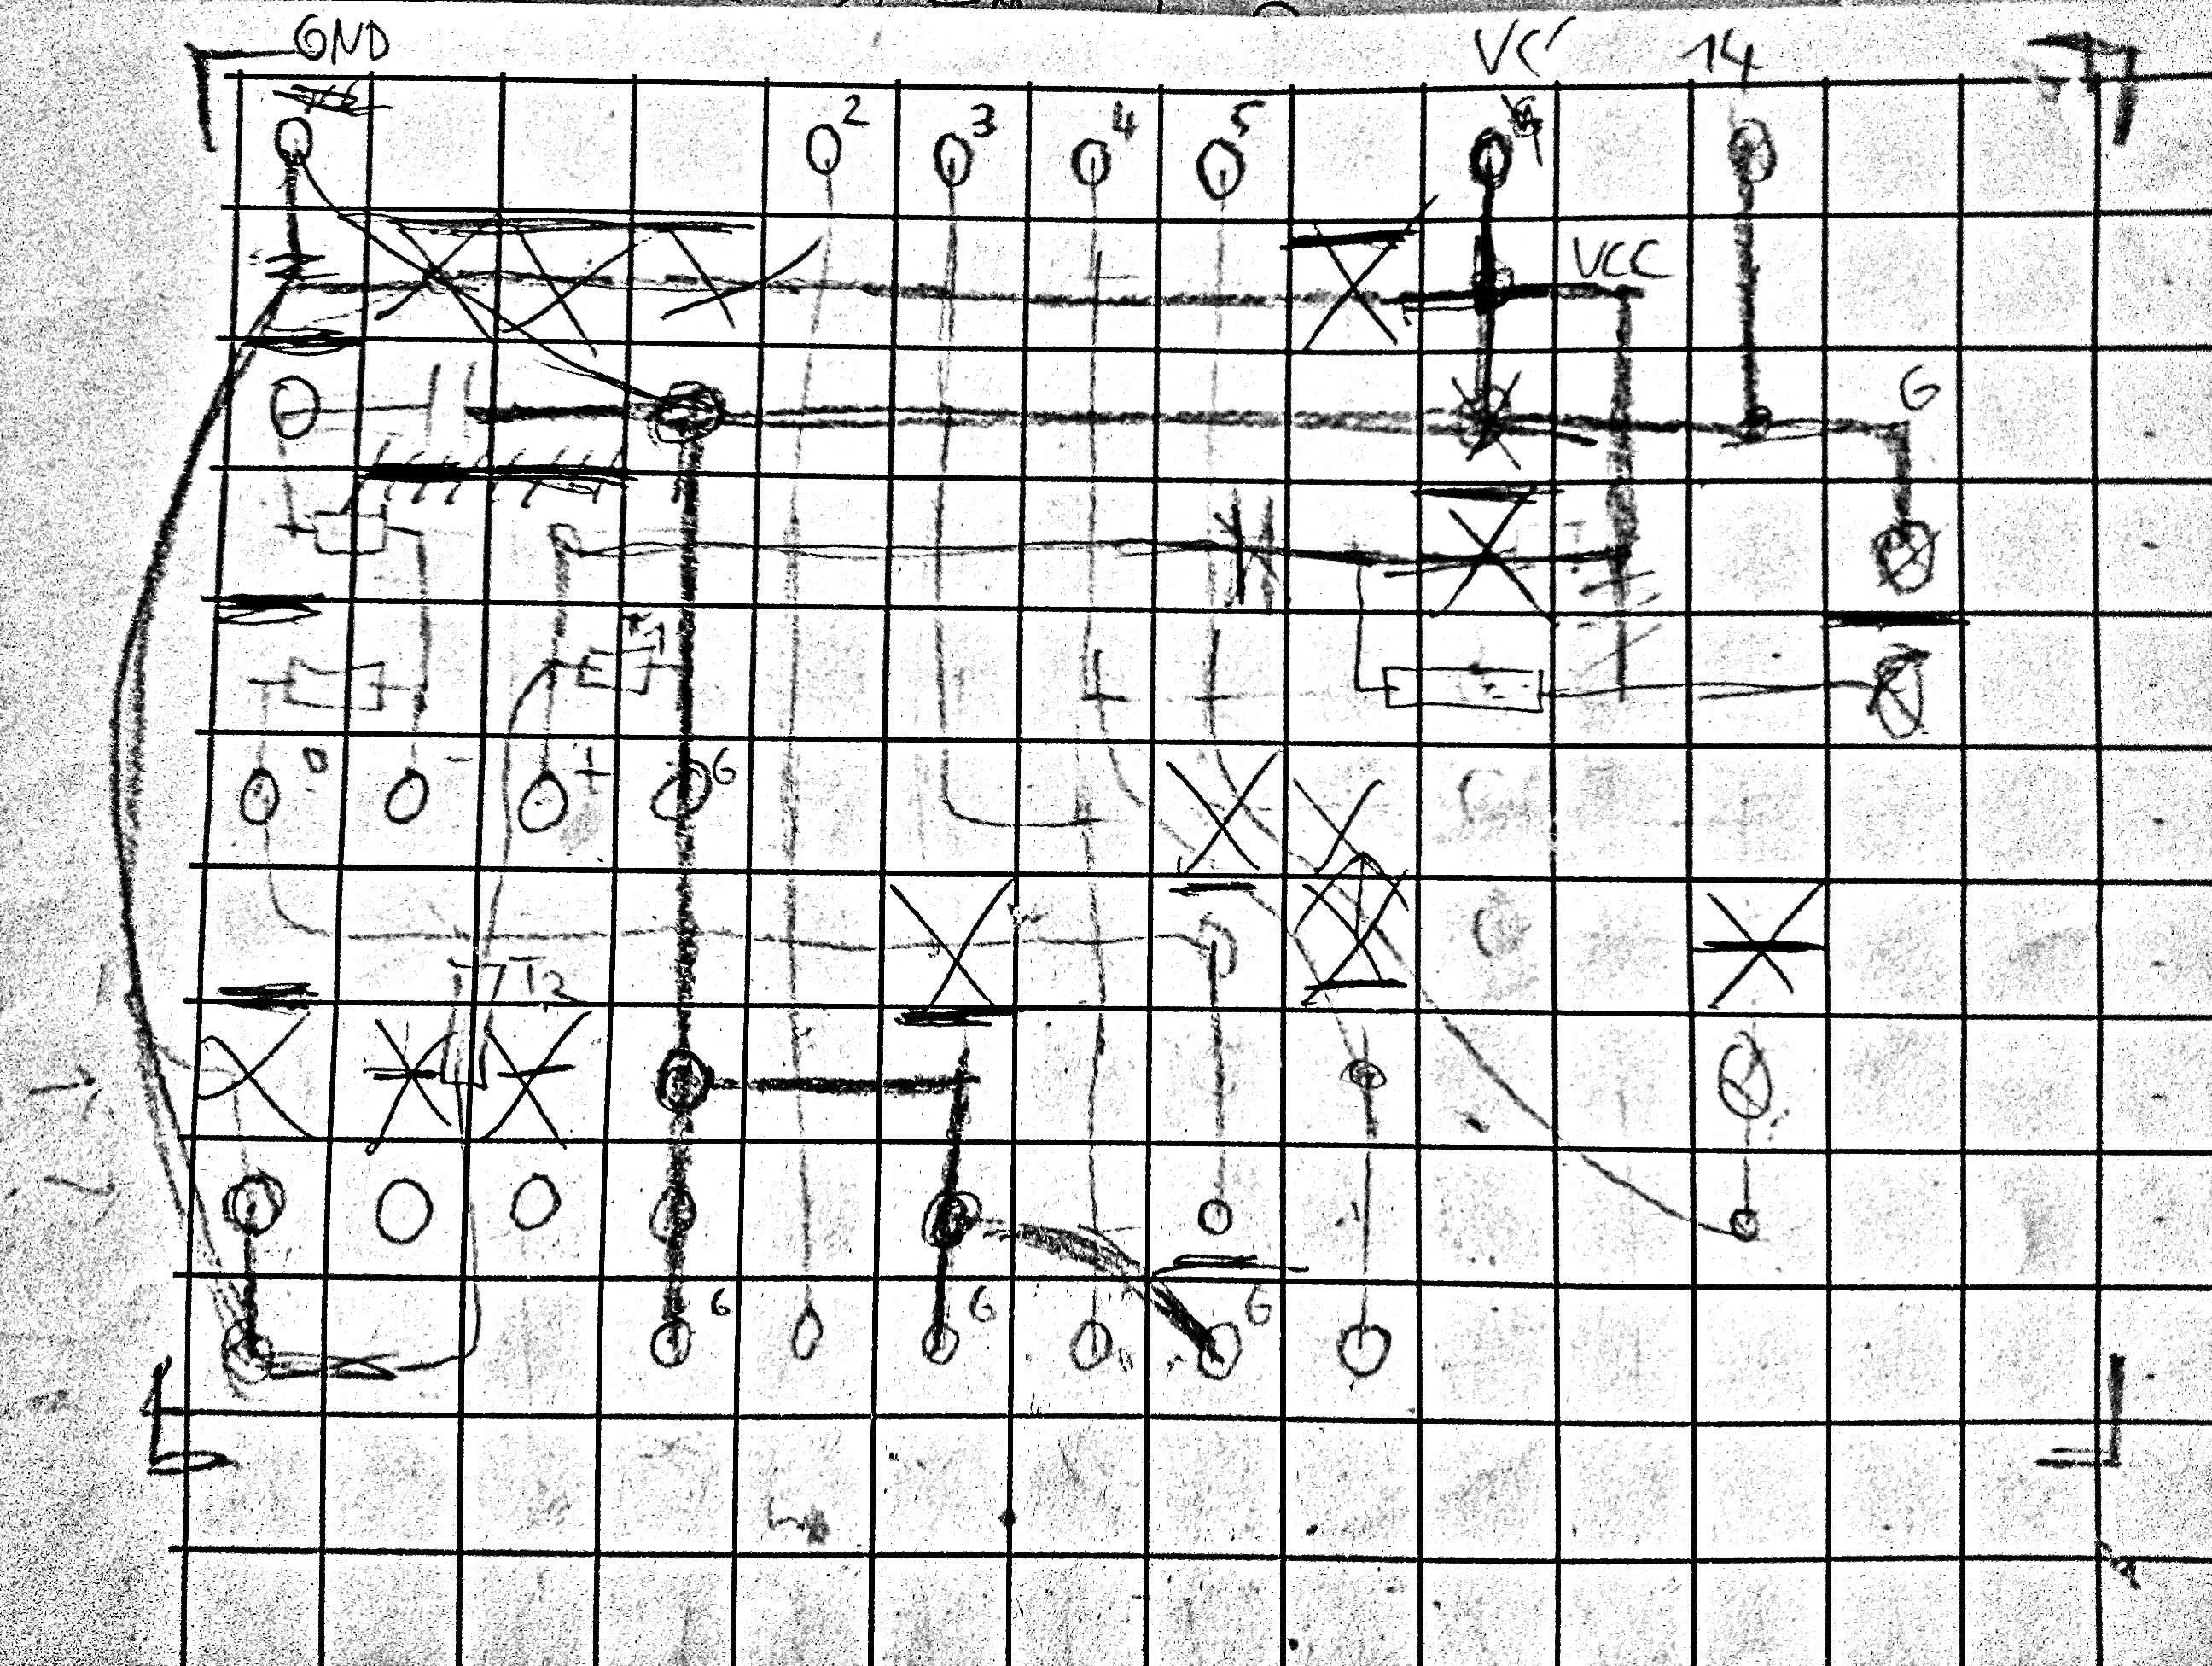 GND VC 14
2 3 4 5
VCC
G
0 - + G
T2
G G G